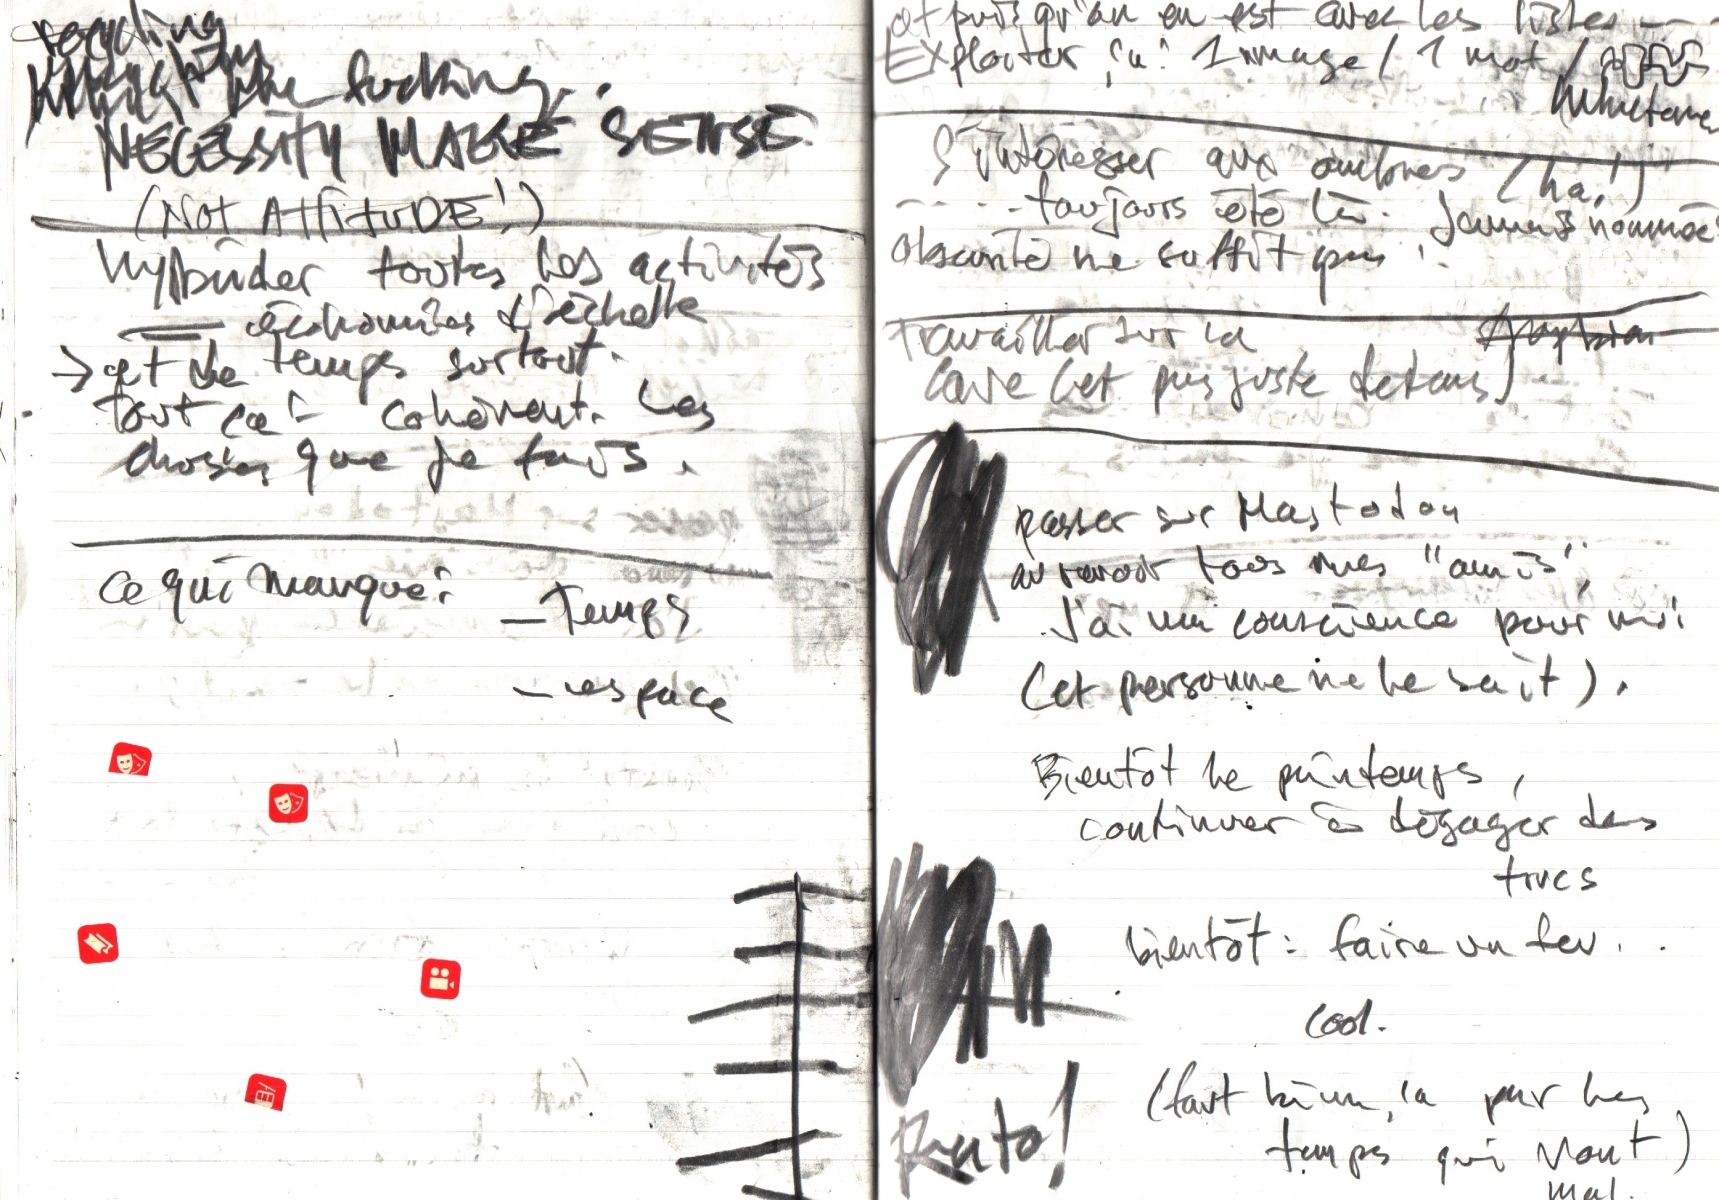 recycling
the fucking..
NECESSITY MAKE SENSE
(NOT ATTITUDE!)
hybrider toutes les activités
économies d'échelle
→ et de temps surtout.
tout ça: cohérent. Les
choses que je fais.
Ce qui manque:
– temps
– espace
et puis qu'on en est avec les listes
Exploiter ça: 1 image / 1 mot /
S'intéresser aux ombres (ha!)
toujours été là. Jamais nommées
obscurité ne suffit pas
Travailler sur la
cave (et pas juste dedans)
passer sur Mastodon
au revoir tous mes "amis",
J'ai ma conscience pour moi
(et personne ne le sait).
Bientôt le printemps,
continuer à dégager des
trucs
bientôt: faire un feu.
cool.
(fait bien, ça par les
temps qui vont)
mal.